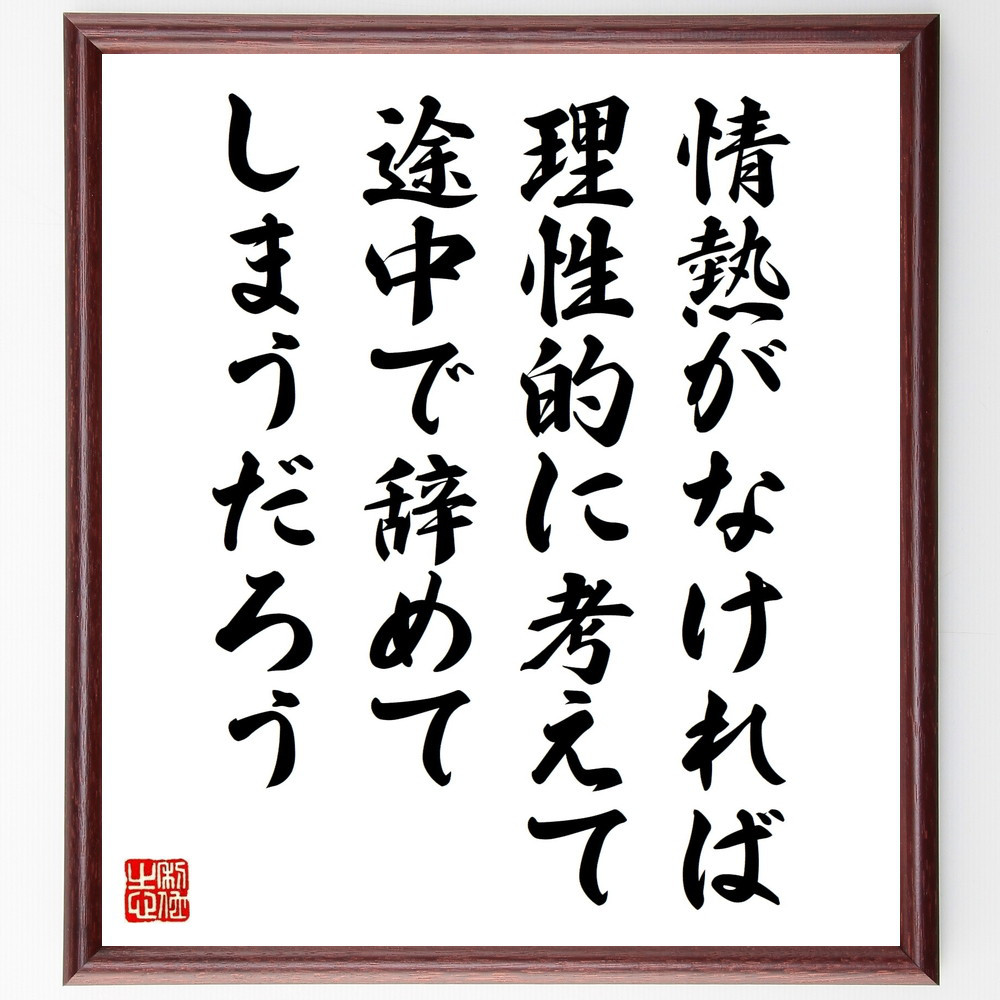 情熱がなければ
理性的に考えて
途中で辞めて
しまうだろう